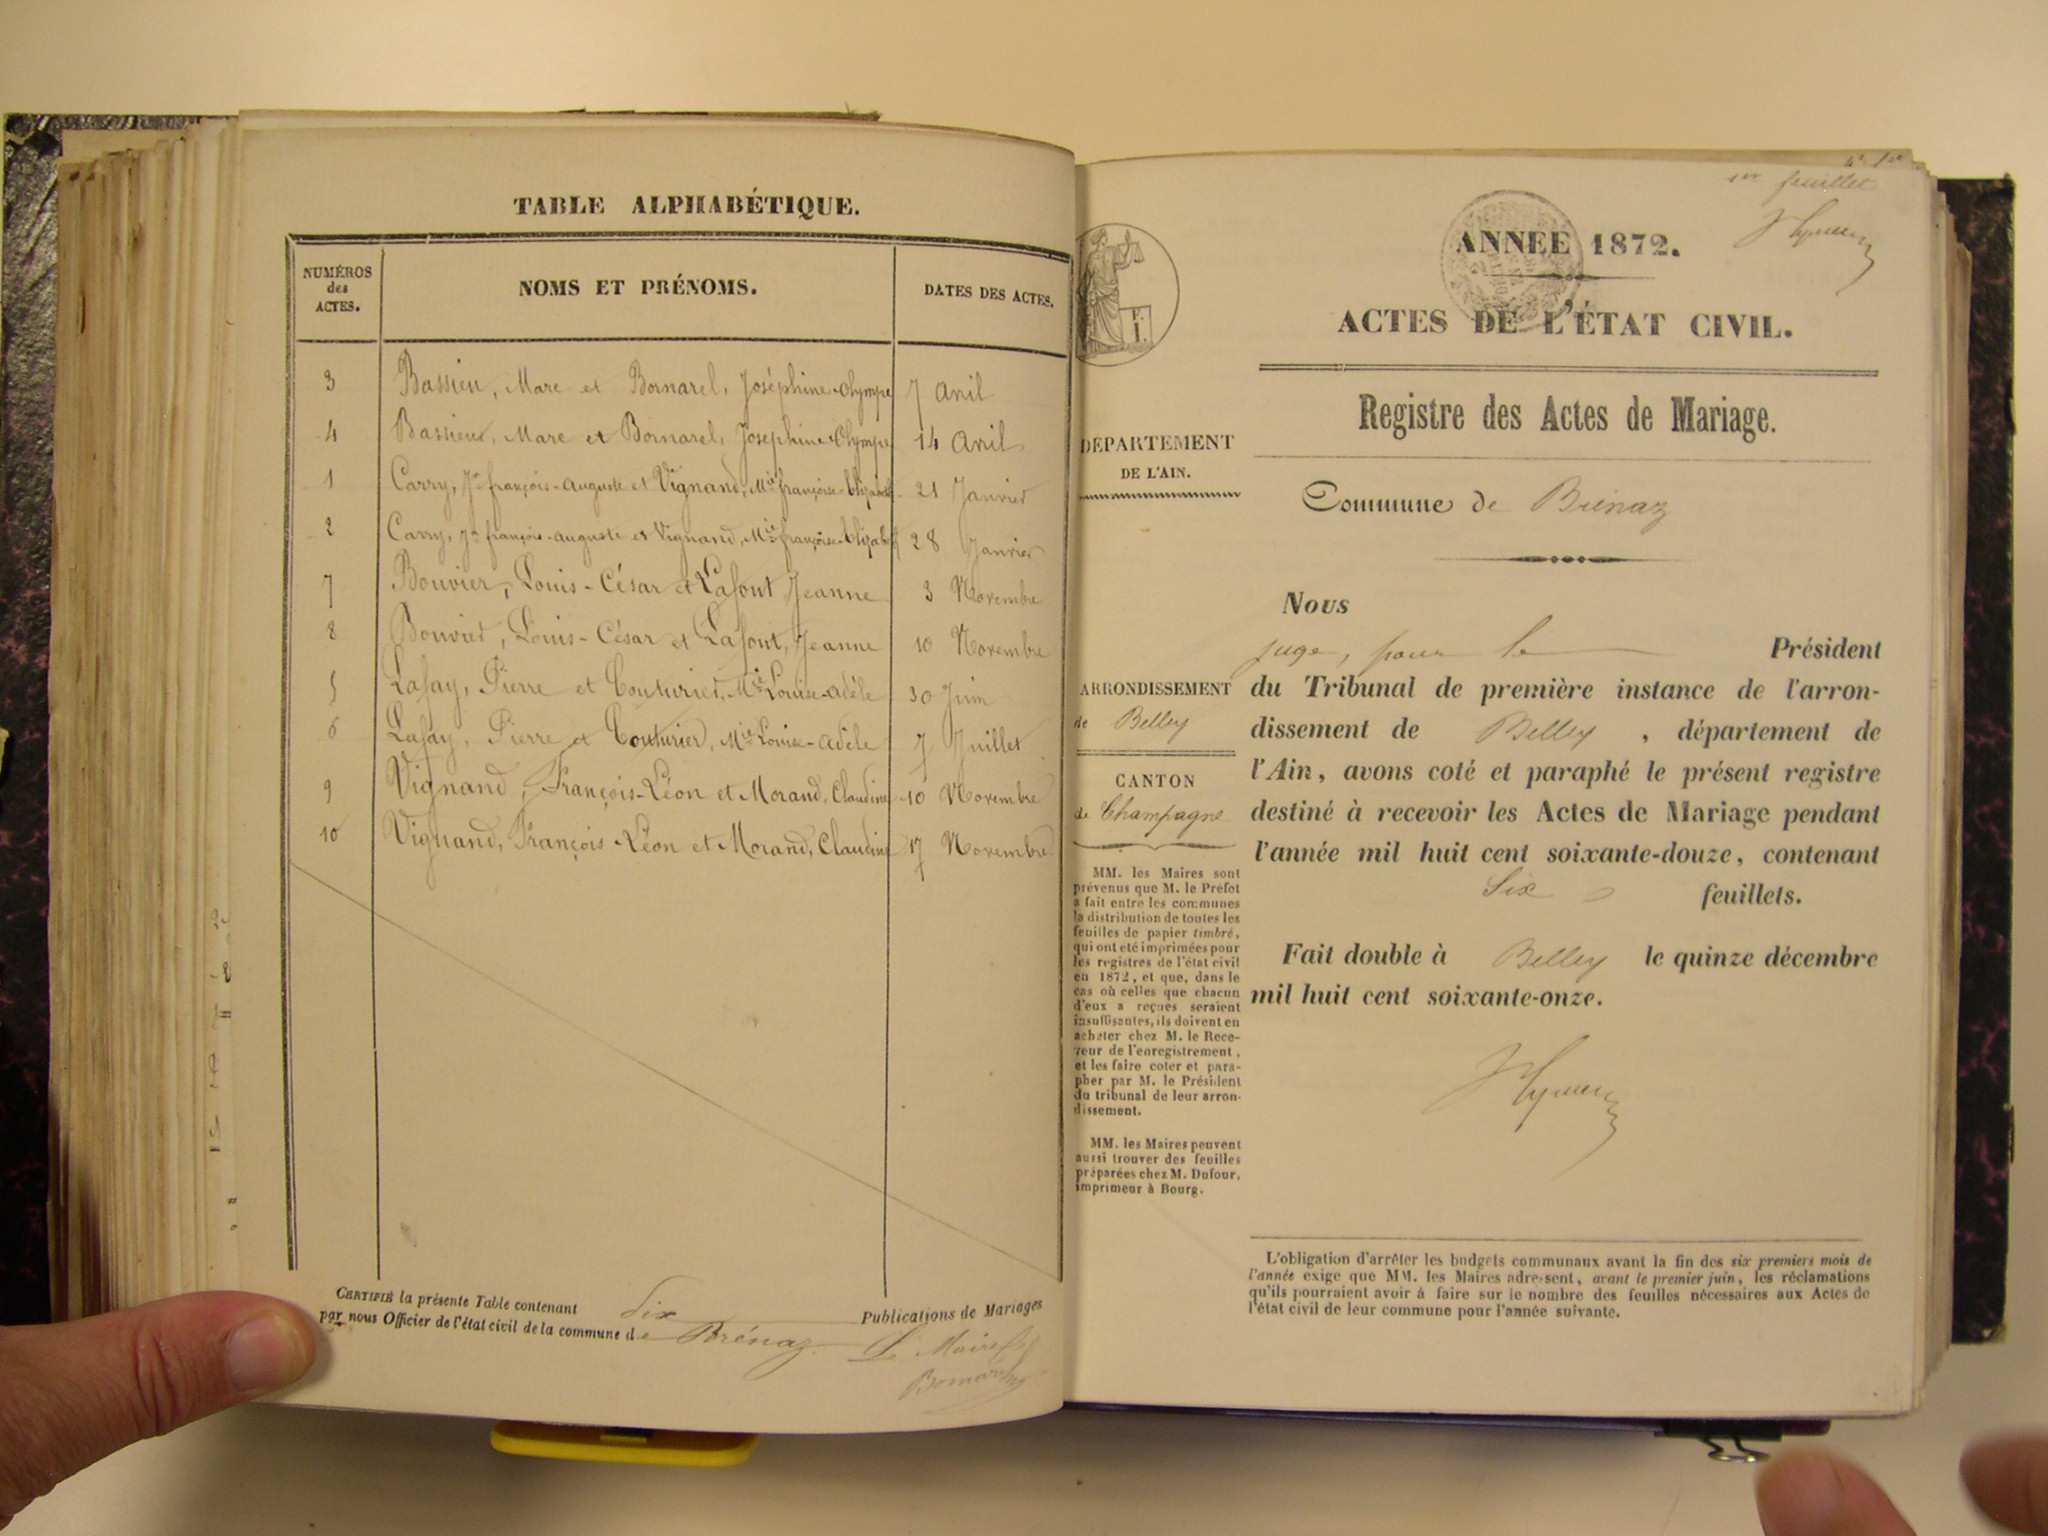 TABLE ALPHABÉTIQUE.
NUMÉROS
des
ACTES.
NOMS ET PRÉNOMS.
DATES DES ACTES.
3 Bassieu, Marc et Bornarel, Joséphine-Olympe 7 avril
4 Bassieux, Marc et Bornarel, Joséphine-Olympe 14 avril
1 Carry, Jn françois-auguste et Vignand, Mie françoise-Elizabeth 21 Janvier
2 Carry, Jn françois-auguste et Vignand, Mie françoise-Elizabeth 28 Janvier
7 Bouvier, Louis-César et Lafont Jeanne 3 Novembre
8 Bouvier, Louis-César et Lafont, Jeanne 10 Novembre
5 Lafay, Pierre et Couturier, Mie Louise-adèle 30 Juin
6 Lafay, Pierre et Couturier, Mie Louise-adèle 7 Juillet
9 Vignand, François-Léon et Morand, Claudine 10 Novembre
10 Vignand, François-Léon et Morand, Claudine 17 Novembre
CERTIFIÉ la présente Table contenant dix Publications de Mariages
par nous Officier de l'état civil de la commune de Brénaz.
Le Maire
1er feuillet
ANNÉE 1872.
ACTES DE L'ÉTAT CIVIL.
Registre des Actes de Mariage.
DÉPARTEMENT
DE L'AIN.
Commune de Brénaz
Nous
juge, pour le Président
du Tribunal de première instance de l'arron-
dissement de Belley, département de
l'Ain, avons coté et paraphé le présent registre
destiné à recevoir les Actes de Mariage pendant
l'année mil huit cent soixante-douze, contenant
Six feuillets.
Fait double à Belley le quinze décembre
mil huit cent soixante-onze.
ARRONDISSEMENT
de Belley
CANTON
de Champagne
MM. les Maires sont
prévenus que M. le Préfet
a fait entre les communes
la distribution de toutes les
feuilles de papier timbré,
qui ont été imprimées pour
les registres de l'état civil
en 1872, et que, dans le
cas où celles que chacun
d'eux a reçues seraient
insuffisantes, ils doivent en
acheter chez M. le Rece-
veur de l'enregistrement,
et les faire coter et para-
pher par M. le Président
du tribunal de leur arron-
dissement.
MM. les Maires peuvent
aussi trouver des feuilles
préparées chez M. Dufour,
imprimeur à Bourg.
L'obligation d'arrêter les budgets communaux avant la fin des six premiers mois de
l'année exige que MM. les Maires adressent, avant le premier juin, les réclamations
qu'ils pourraient avoir à faire sur le nombre des feuilles nécessaires aux Actes de
l'état civil de leur commune pour l'année suivante.